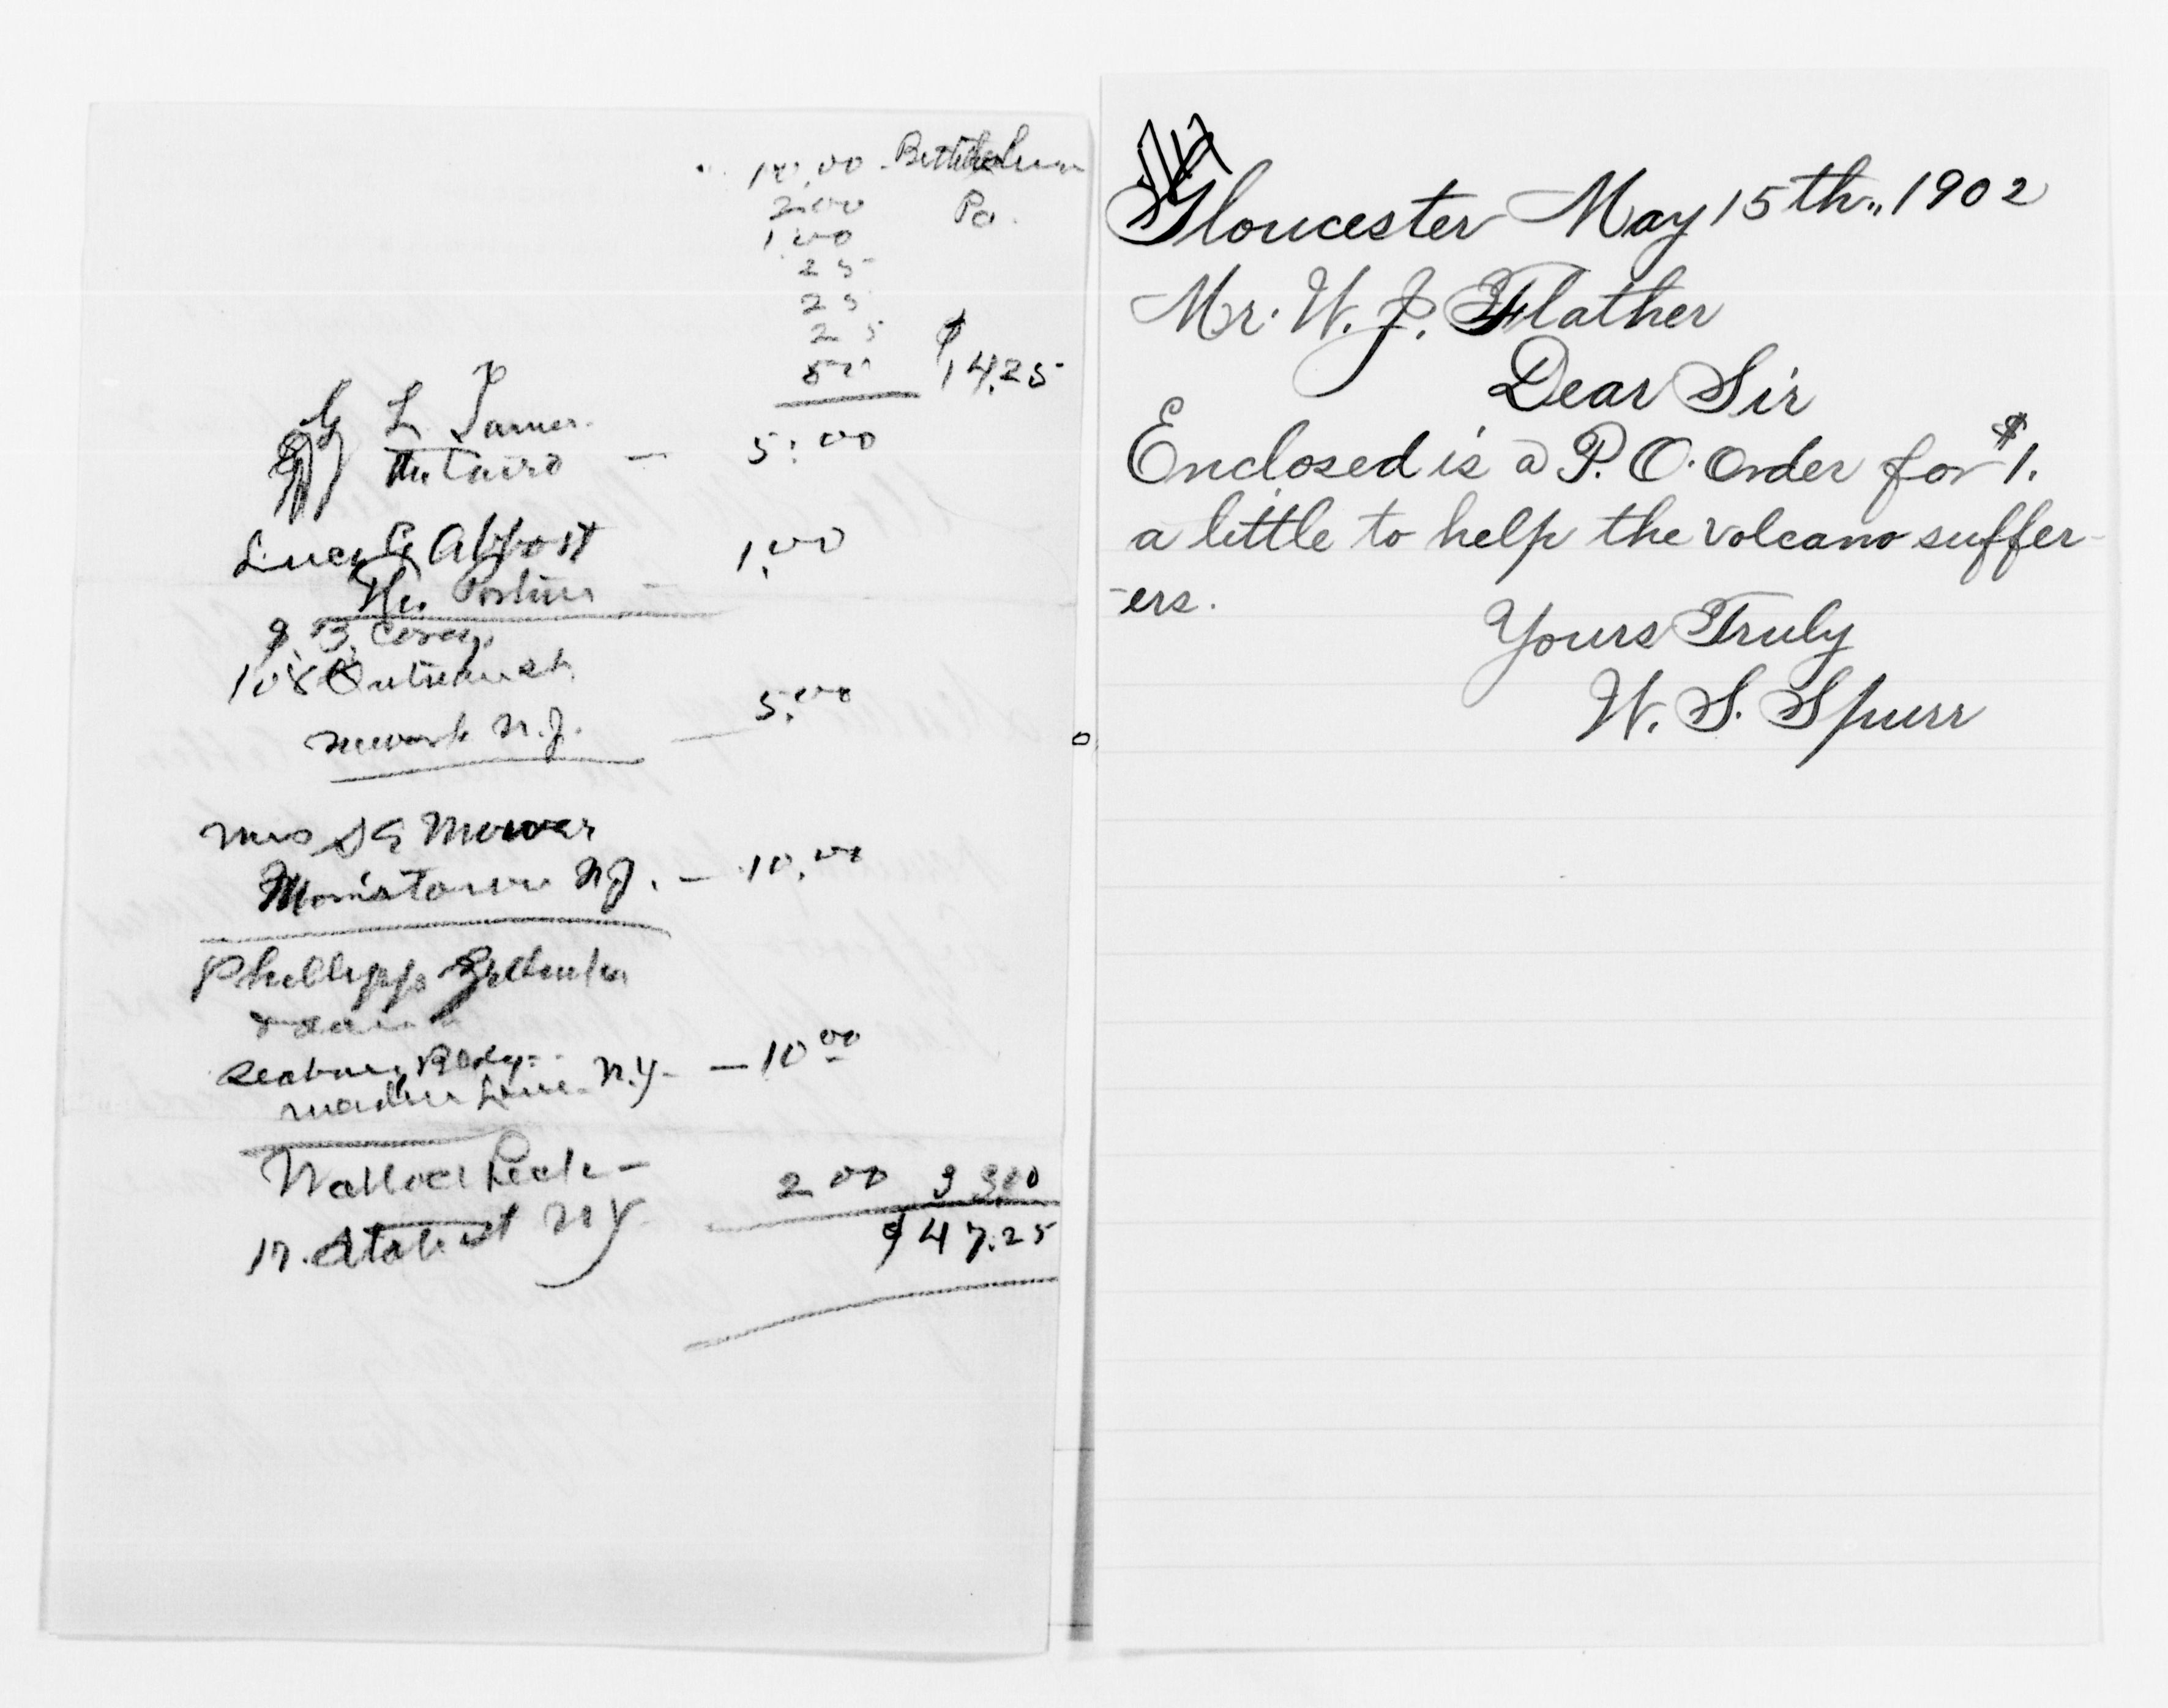 10.00 - Bethlehem
2.00 Pa.
1.00
25
25
25
50 $14.25
G L
5.00
Lucy G Abbott 1.00
The
J. B. Corey
108
Newark N.J. 5.00
Mrs S E Mower
Morristown N.J. - 10.00
Phillipps
Seabury Bldg.
Maiden Lane - N.Y - - 10 00
Wallace Peck -
2 00 33 00
17. State St N Y.
$47.25
Gloucester May 15th., 1902
Mr. W. J. Flather
Dear Sir
Enclosed is a P. O. Order for $1.
a little to help the volcano suffer-
-ers.
Yours Truly
W. S. Spurr